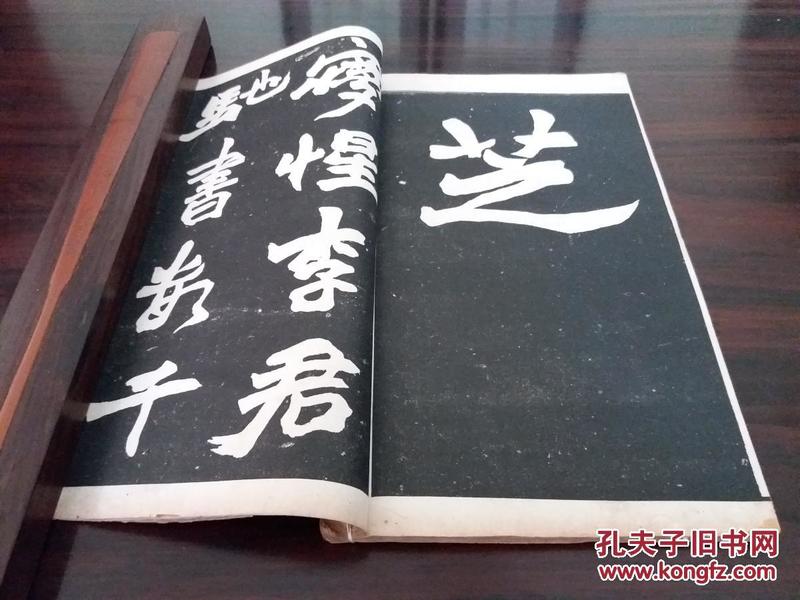 芝
惺李君
馳書數千
孔夫子旧书网
www.kongfz.com